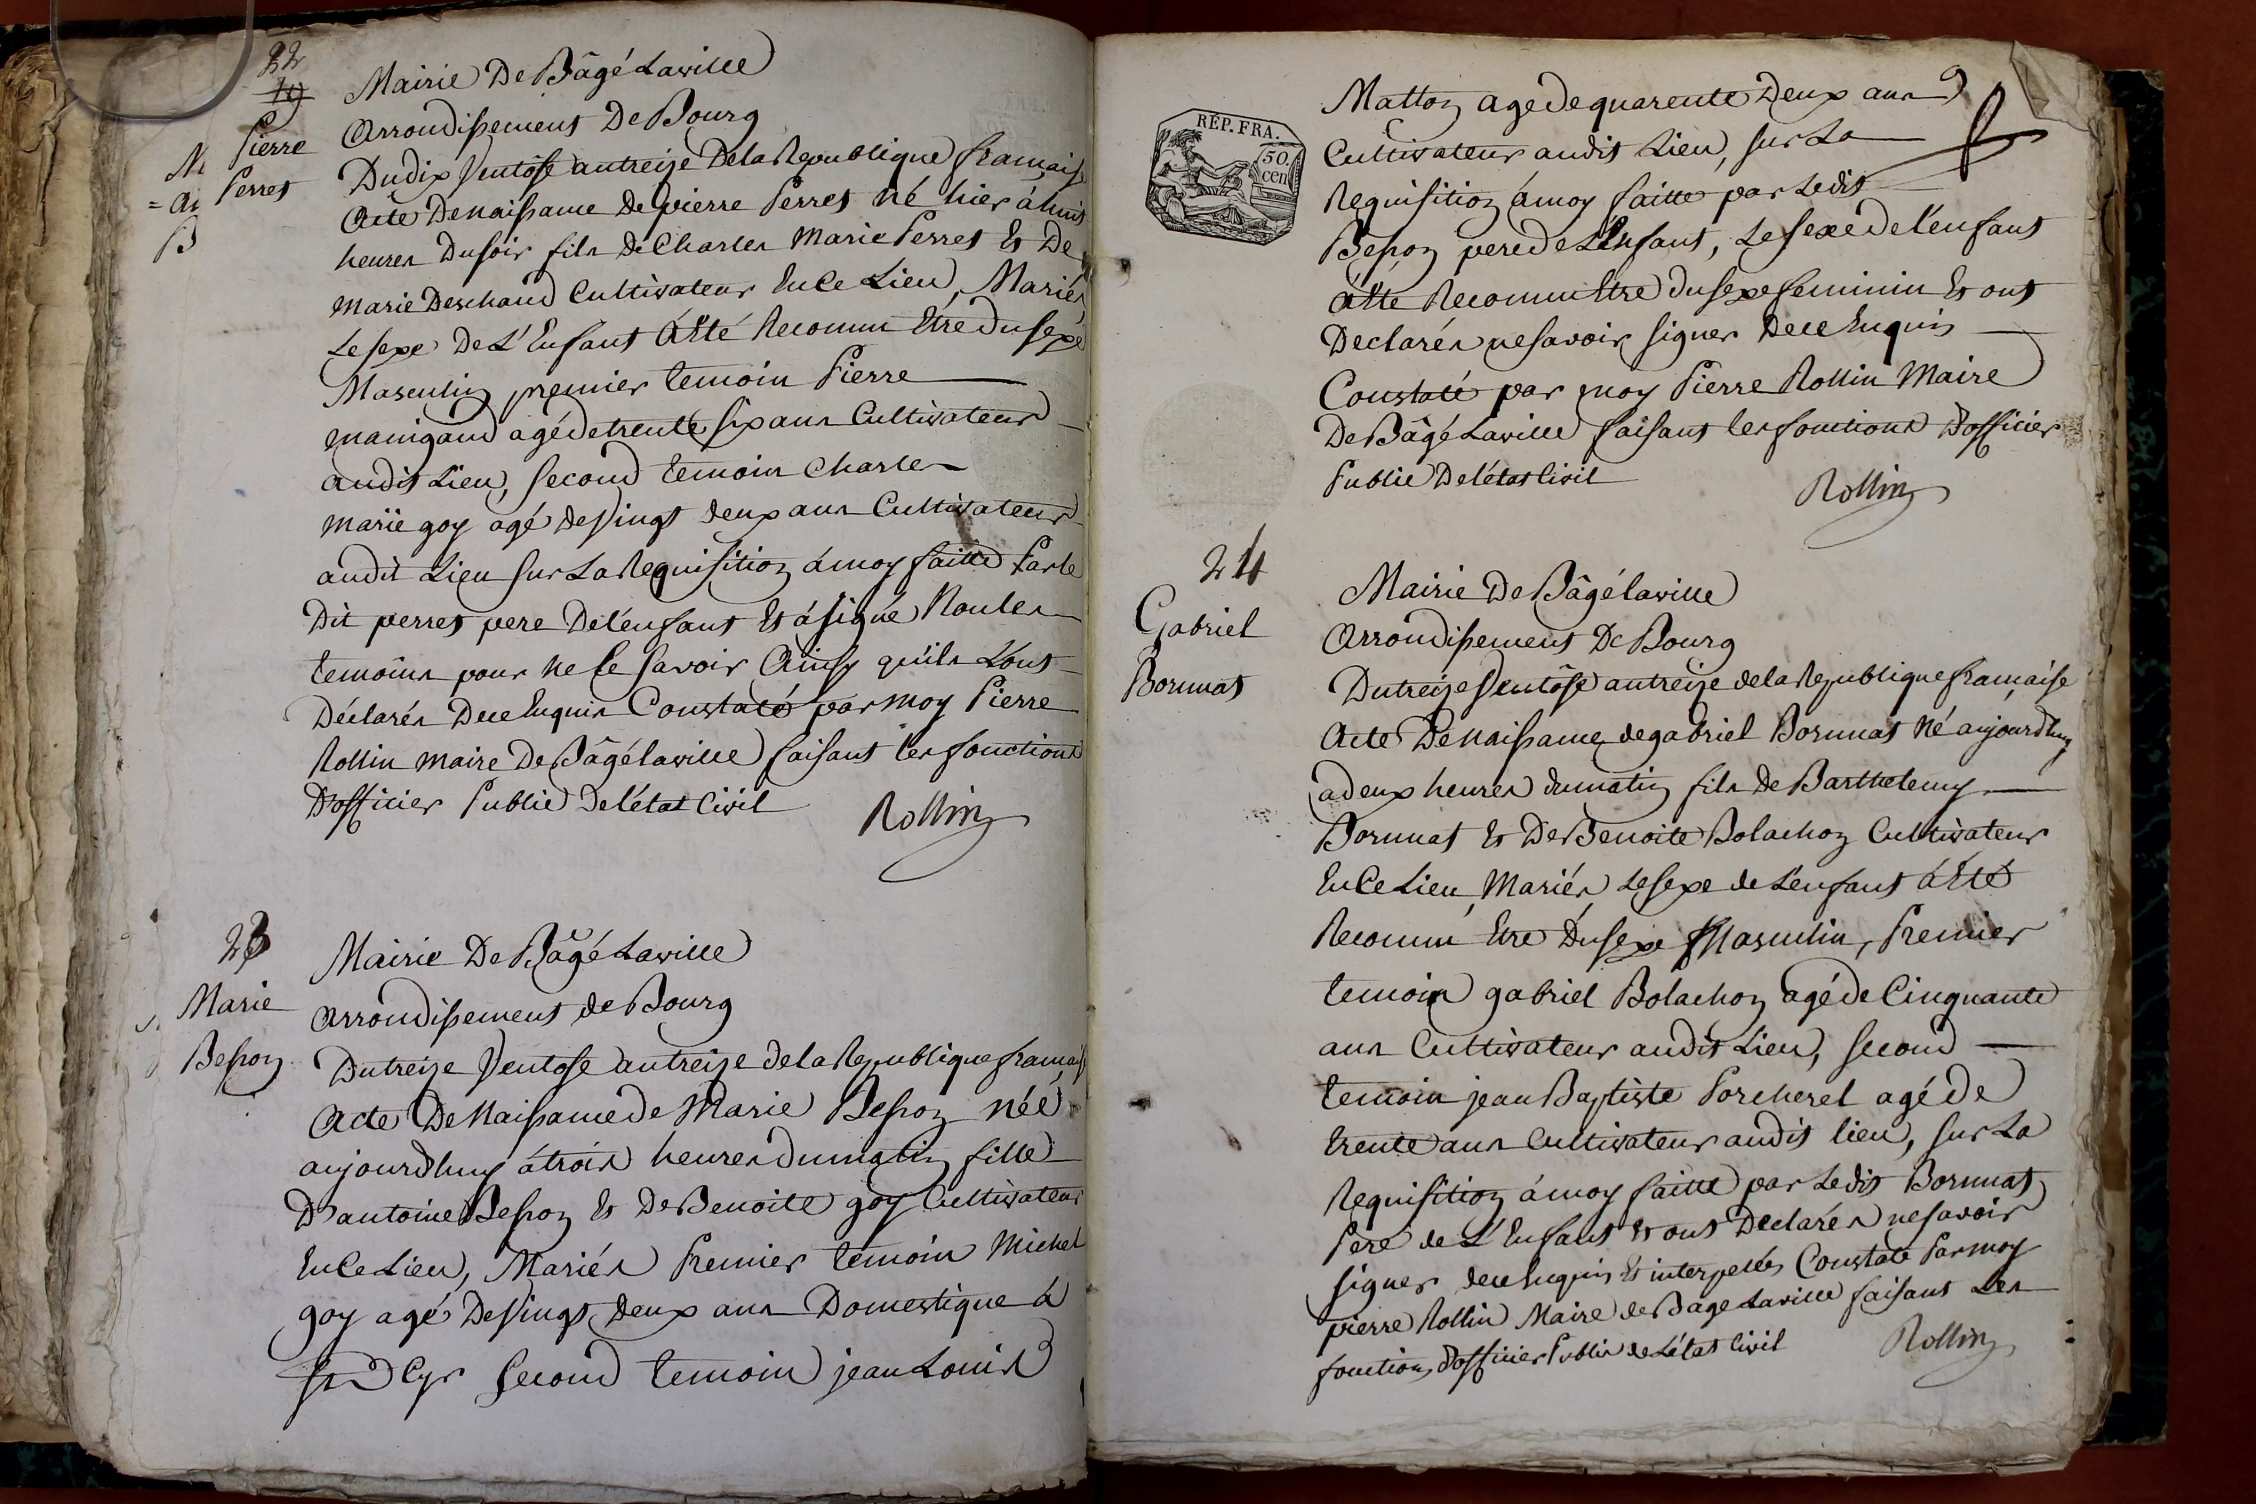 22
19
Pierre
Perret
Mairie De Bâgé Laville
Arrondissement De Bourg
Du dix Ventôse an treize De la Republique française
Acte De naissance De pierre Perret né hier à huit
heures Du soir fils De Charles Marie Perret Et De
marie Deschaud Cultivateur En Ce Lieu, Mariés,
Le sexe De L'Enfant à Eté Reconnu Etre Du sexe
Masculin premier temoin Pierre
manigaud agé de trente six ans Cultivateur
audit Lieu, second temoin Charle
marie goy agé De Vingt deux ans Cultivateur
audit Lieu sur La Requisition à moy faitte Par le
Dit perret pere De l'enfant Et à signé Non les
temoins pour ne le savoir Ainsy qu'ils L'ont
Déclarés De ce Enquis Constaté par moy Pierre
Rollin maire De Bâgé laville faisant les fonctions
D'officier Public De l'état Civil
Rollin
23
Marie
Besson
Mairie De Bâgé Laville
Arrondissement de Bourg
Du treize Ventose an treize de la Republique française
Acte De Naissance de Marie Besson née
aujourdhuy à trois heures du matin fille
D'antoine Besson Et De Benoite goy Cultivateur
En Ce Lieu, Mariés Premier temoin Michel
goy agé De Vingt Deux ans Domestique à
St Cyr second temoin jean Louis
REP. FRA.
50.
cen
9
Matton agé de quarente Deux ans
Cultivateur audit Lieu, sur La
Requisition à moy faitte par Ledit
Besson pere de L'Enfant, Le sexe de l'enfant
à Eté Reconnu Etre Du sexe feminin Et ont
Declarés ne savoir signer De ce Enquis
Constaté par moy Pierre Rollin Maire
De Bâgé Laville faisant les fonctions D'officier
Public De l'état Civil
Rollin
24
Gabriel
Bornnat
Mairie De Bâgé laville
Arrondissement De Bourg
Du treize Ventôse an treize de la Republique française
Acte De naissance de gabriel Bornnat né aujourdhuy
a deux heures du matin fils De Barthelemy
Bornnat Et De Benoite Bolachon Cultivateur
En Ce Lieu, Mariés, Le sexe de L'enfant à Eté
Reconnu Etre Du sexe Masculin, Premier
temoin gabriel Bolachon agé de Cinquante
ans Cultivateur audit Lieu, second
temoin jean Baptiste Porcherel agé De
trente ans Cultivateur audit lieu, sur La
Requisition à moy faitte par Ledit Bornnat
Pere de L'Enfant Et ont Declarés ne savoir
signer de ce Enquis Et interpellés Constaté Par moy
pierre Rollin Maire de Bage Laville faisant Les
fonctions D'officier Public de L'état Civil
Rollin